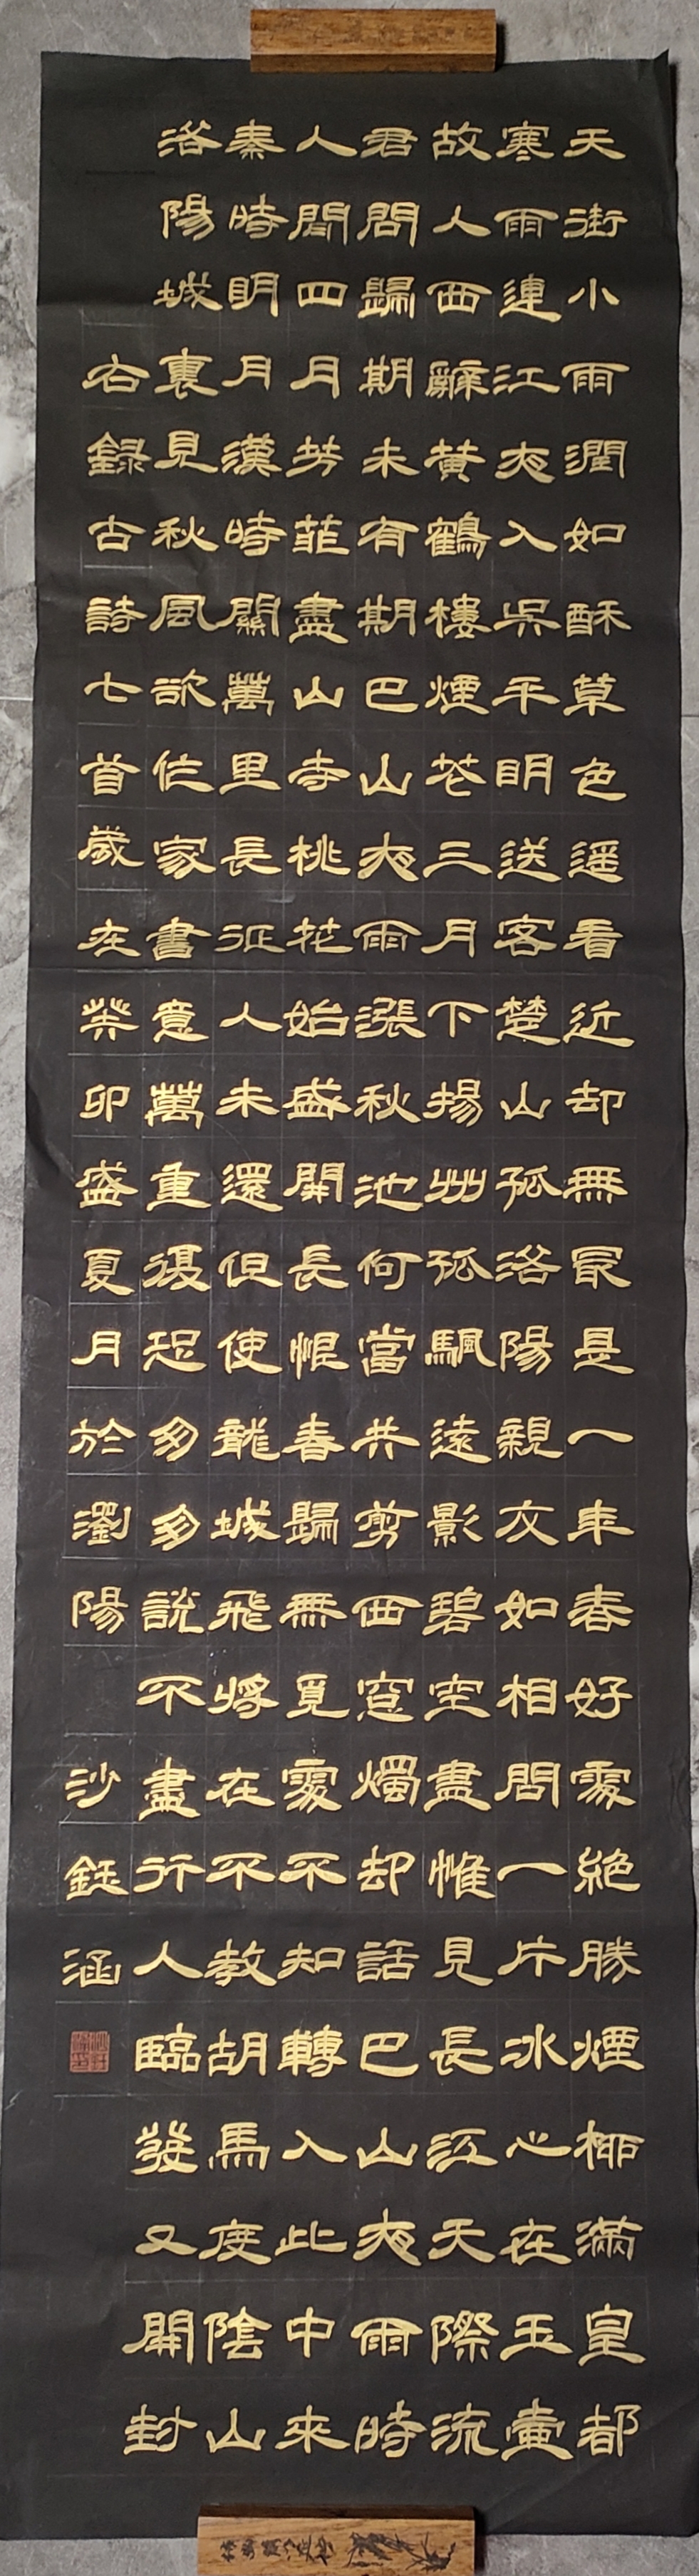 天街小雨潤如酥草色遥看近却無冣是一年春好處絕勝煙柳滿皇都
寒雨連江夜入吳平明送客楚山孤洛陽親友如相問一片冰心在玉壷
故人西辭黄鶴樓煙花三月下揚州孤颿遠影碧空盡惟見長江天際流
君問歸期未有期巴山夜雨漲秋池何當共剪西窓燭却話巴山夜雨時
人間四月芳菲盡山寺桃花始盛開長恨春歸無覓處不知轉入此中來
秦時明月漢時關萬里長征人未還但使龍城飛將在不教胡馬度陰山
洛陽城裏見秋風欲作家書意萬重復恐匆匆說不盡行人臨發又開封
右録古詩七首歲在癸卯盛夏月於瀏陽 沙鈺涵